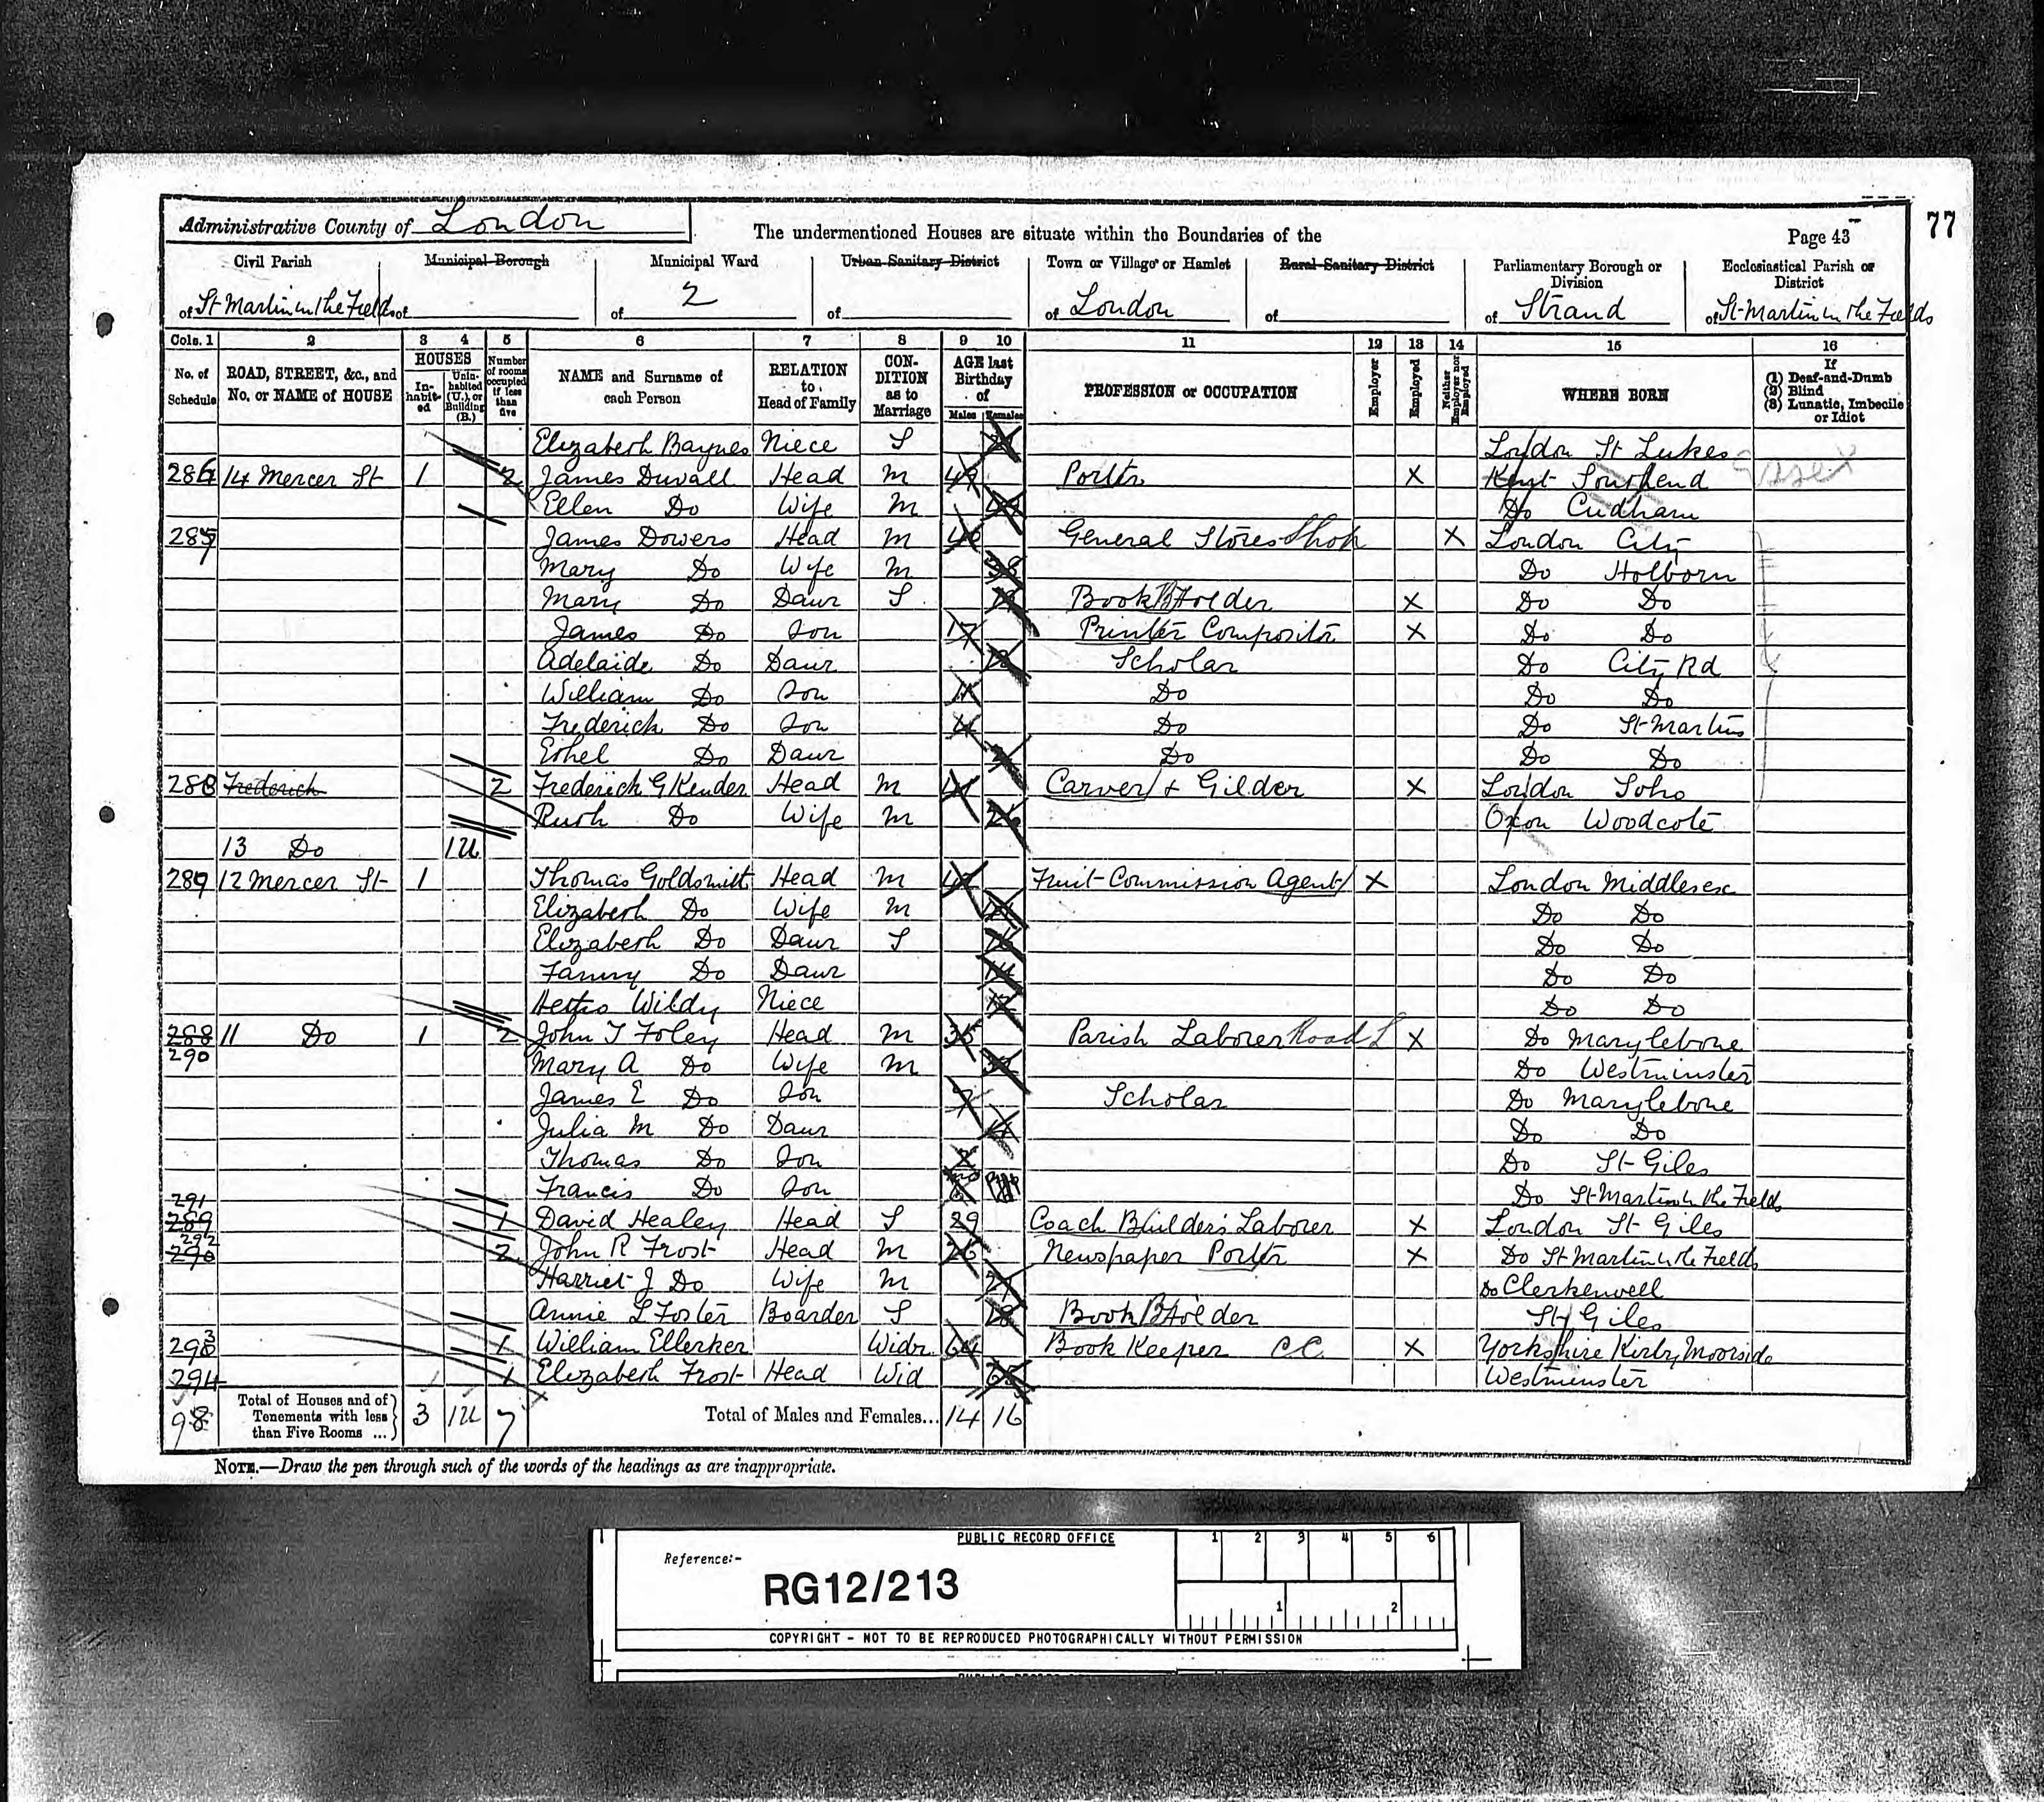 77
Administrative County of London
The undermentioned Houses are situate within the Boundaries of the
Page 43
Civil Parish of St Martin in the Fields
Municipal Borough of
Municipal Ward of 2
Urban Sanitary District of
Town or Village or Hamlet of London
Rural Sanitary District of
Parliamentary Borough or Division of Strand
Ecclesiastical Parish or District of St Martin in the Fields
Cols. 1 2 3 4 5 6 7 8 9 10 11 12 13 14 15 16
No. of Schedule
ROAD, STREET, &c., and No. or NAME of HOUSE
HOUSES
In-habit-ed
Unin-habited (U.), or Building (B.)
Number of rooms occupied if less than five
NAME and Surname of each Person
RELATION to Head of Family
CON-DITION as to Marriage
AGE last Birthday of
Males Females
PROFESSION or OCCUPATION
Employer
Employed
Neither Employer nor Employed
WHERE BORN
If (1) Deaf-and-Dumb (2) Blind (3) Lunatic, Imbecile or Idiot
Elizabeth Baynes Niece S London St Lukes
286 14 Mercer St 1 2 James Duvall Head M 49 Porter X Kent Southend Essex
Ellen Do Wife M Do Cudham
287 James Dowers Head M 40 General Stores Shop X London City
Mary Do Wife M 38 Do Holborn
Mary Do Daur S Book Folder X Do Do
James Do Son 17 Printer Compositor X Do Do
Adelaide Do Daur Scholar Do City Rd
William Do Son 11 Do Do Do
Frederick Do Son Do Do St Martins
Ethel Do Daur Do Do Do
288 Frederick 2 Frederick G Kender Head M Carver & Gilder X London Soho
Ruth Do Wife M 26 Oxon Woodcote
13 Do 1U
289 12 Mercer St 1 Thomas Goldsmith Head M Fruit Commission Agent X London Middlesex
Elizabeth Do Wife M Do Do
Elizabeth Do Daur S Do Do
Fanny Do Daur 14 Do Do
Wildy Niece 12 Do Do
288 11 Do 1 2 John T Foley Head M 35 Parish Laborer Road L X Do Marylebone
290 Mary A Do Wife M 32 Do Westminster
James E Do Son 7 Scholar Do Marylebone
Julia M Do Daur 4 Do Do
Thomas Do Son Do St Giles
Francis Do Son Do St Martin in the Fields
291 289 1 David Healey Head S 29 Coach Builders Laborer X London St Giles
292 290 2 John R Frost Head M 26 Newspaper Porter X Do St Martin in the Fields
Harriet J Do Wife M Do Clerkenwell
Annie L Foster Boarder S Book Folder St Giles
293 1 William Ellerker Widr 64 Book Keeper CC X Yorkshire Kirby Moorside
294 1 Elizabeth Frost Head Wid 65 Westminster
98 Total of Houses and of Tenements with less than Five Rooms ... 3 1U 7 Total of Males and Females... 14 16
NOTE.—Draw the pen through such of the words of the headings as are inappropriate.
PUBLIC RECORD OFFICE
1 2 3 4 5 6
Reference:-
RG12/213
1 2
COPYRIGHT - NOT TO BE REPRODUCED PHOTOGRAPHICALLY WITHOUT PERMISSION